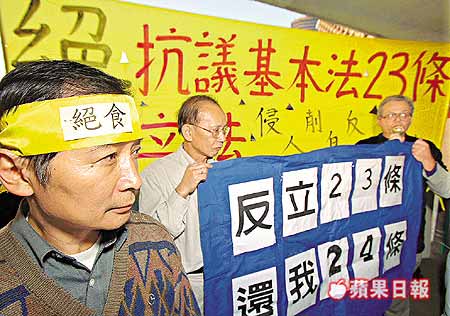 絕 抗議基本法23條
立法
侵 削 反
人
絕食
反立23條
還我24條
蘋果日報